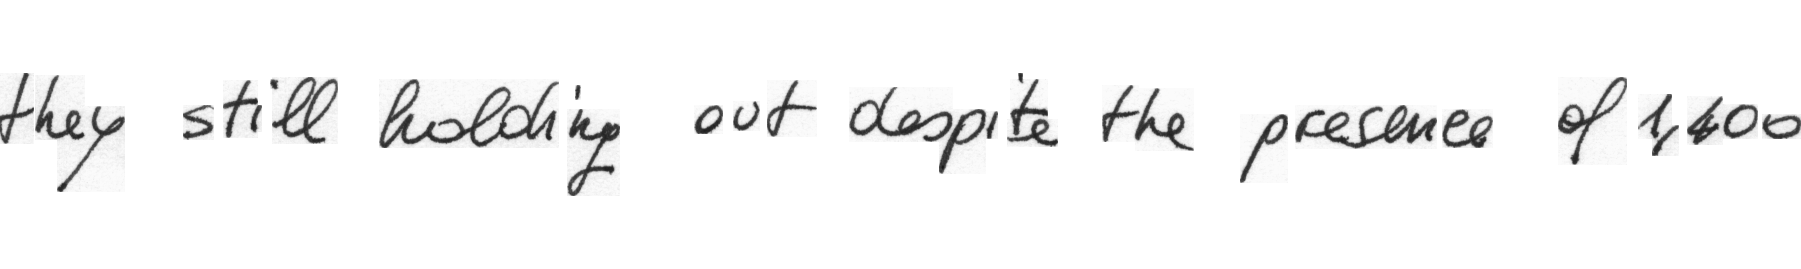 they still holding out despite the presence of 1,400